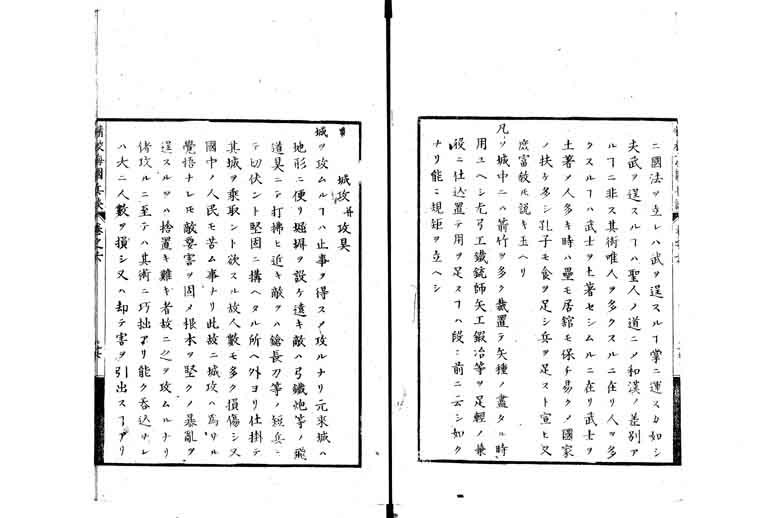 ニ國法ヲ立レハ武ヲ逞スルヿ掌ニ運スカ如シ
夫武ヲ逞スルヿハ聖人ノ道ニメ和漢ノ差別ア
ルヿニ非ス其術唯人ヲ多クスルニ在リ人ヲ多
クスルヿハ武士ヲ土著セシムルニ在リ武士ヲ
土著ノ人多キ時ハ壘モ居舘モ保チ易クメ國家
ノ扶ケ多シ孔子モ食ヲ足シ兵ヲ足スト宣ヒ又
庶富敎ᅵモ説キ玉ヘリ
凡ソ城中ニハ箭竹ヲ多ク裁置テ矢種ノ盡タル時
用ユヘシ尤弓工鐵銃師矢工鍛冶等ヲ足輕ノ兼
役ニ仕込置テ用ヲ足スヿハ段〻前ニ云シ如ク
ナリ能〻規矩ヲ立ヘシ
城攻并攻具
城ヲ攻ムルヿハ止事ヲ得スメ攻ルナリ元来城ハ
地形ニ便リ堀塀ヲ設ケ遠キ敵ハ弓鐵炮等ノ飛
道具ニテ打拂ヒ近キ敵ヲハ鎗長刀等ノ短兵ニ
テ切伏ント堅固ニ構ヘタル所ヘ外ヨリ仕掛テ
其城ヲ乗取ント欲スル故人數モ多ク損傷シ又
國中ノ人民モ苦ム事ナリ此故ニ城攻ハ為リル
覺悟ナレモ敵要害ヲ固メ根本ヲ堅クメ暴亂ヲ
逞スルヲハ捨置キ難キ者故ニ之ヲ攻ムルナリ
偖攻ルニ至テハ其術ニ巧拙アリ能ク呑込サレ
ハ大ニ人數ヲ損シ又ハ却テ害ヲ引出スヿアリ
海國兵談
卷之六